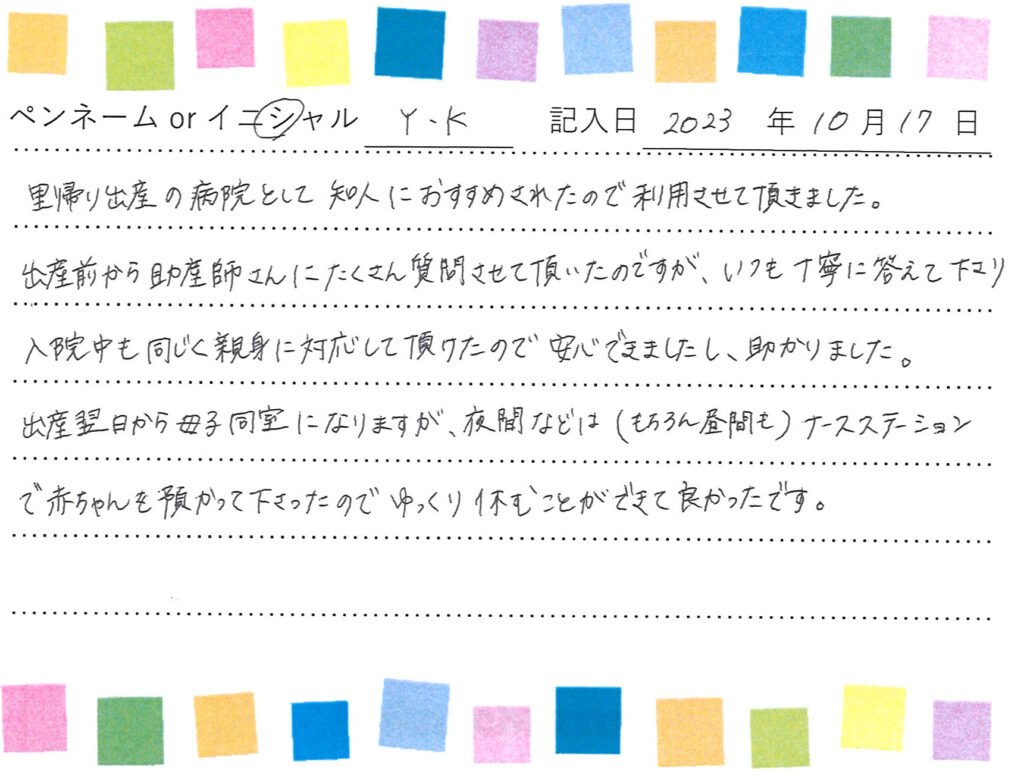 ペンネーム or イニシャル Y・K 記入日 2023 年 10 月 17 日
里帰り出産の病院として 知人におすすめされたので利用させて頂きました。
出産前から助産師さんにたくさん質問させて頂いたのですが、いつも丁寧に答えて下さり
入院中も同じく親身に対応して頂けたので安心できましたし、助かりました。
出産翌日から母子同室になりますが、夜間などは(もちろん昼間も)ナースステーション
で赤ちゃんを預かって下さったのでゆっくり休むことができて良かったです。